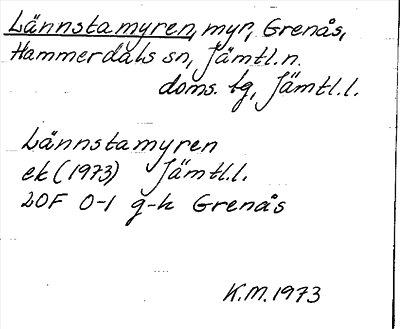 Lännstamyren, myr, Grenås,
Hammerdals sn, Jämtl.n.
doms. tg, Jämtl.l.
Lännstamyren
ek (1973) Jämtl.l.
20F 0-1 g-h Grenås
K.M. 1973